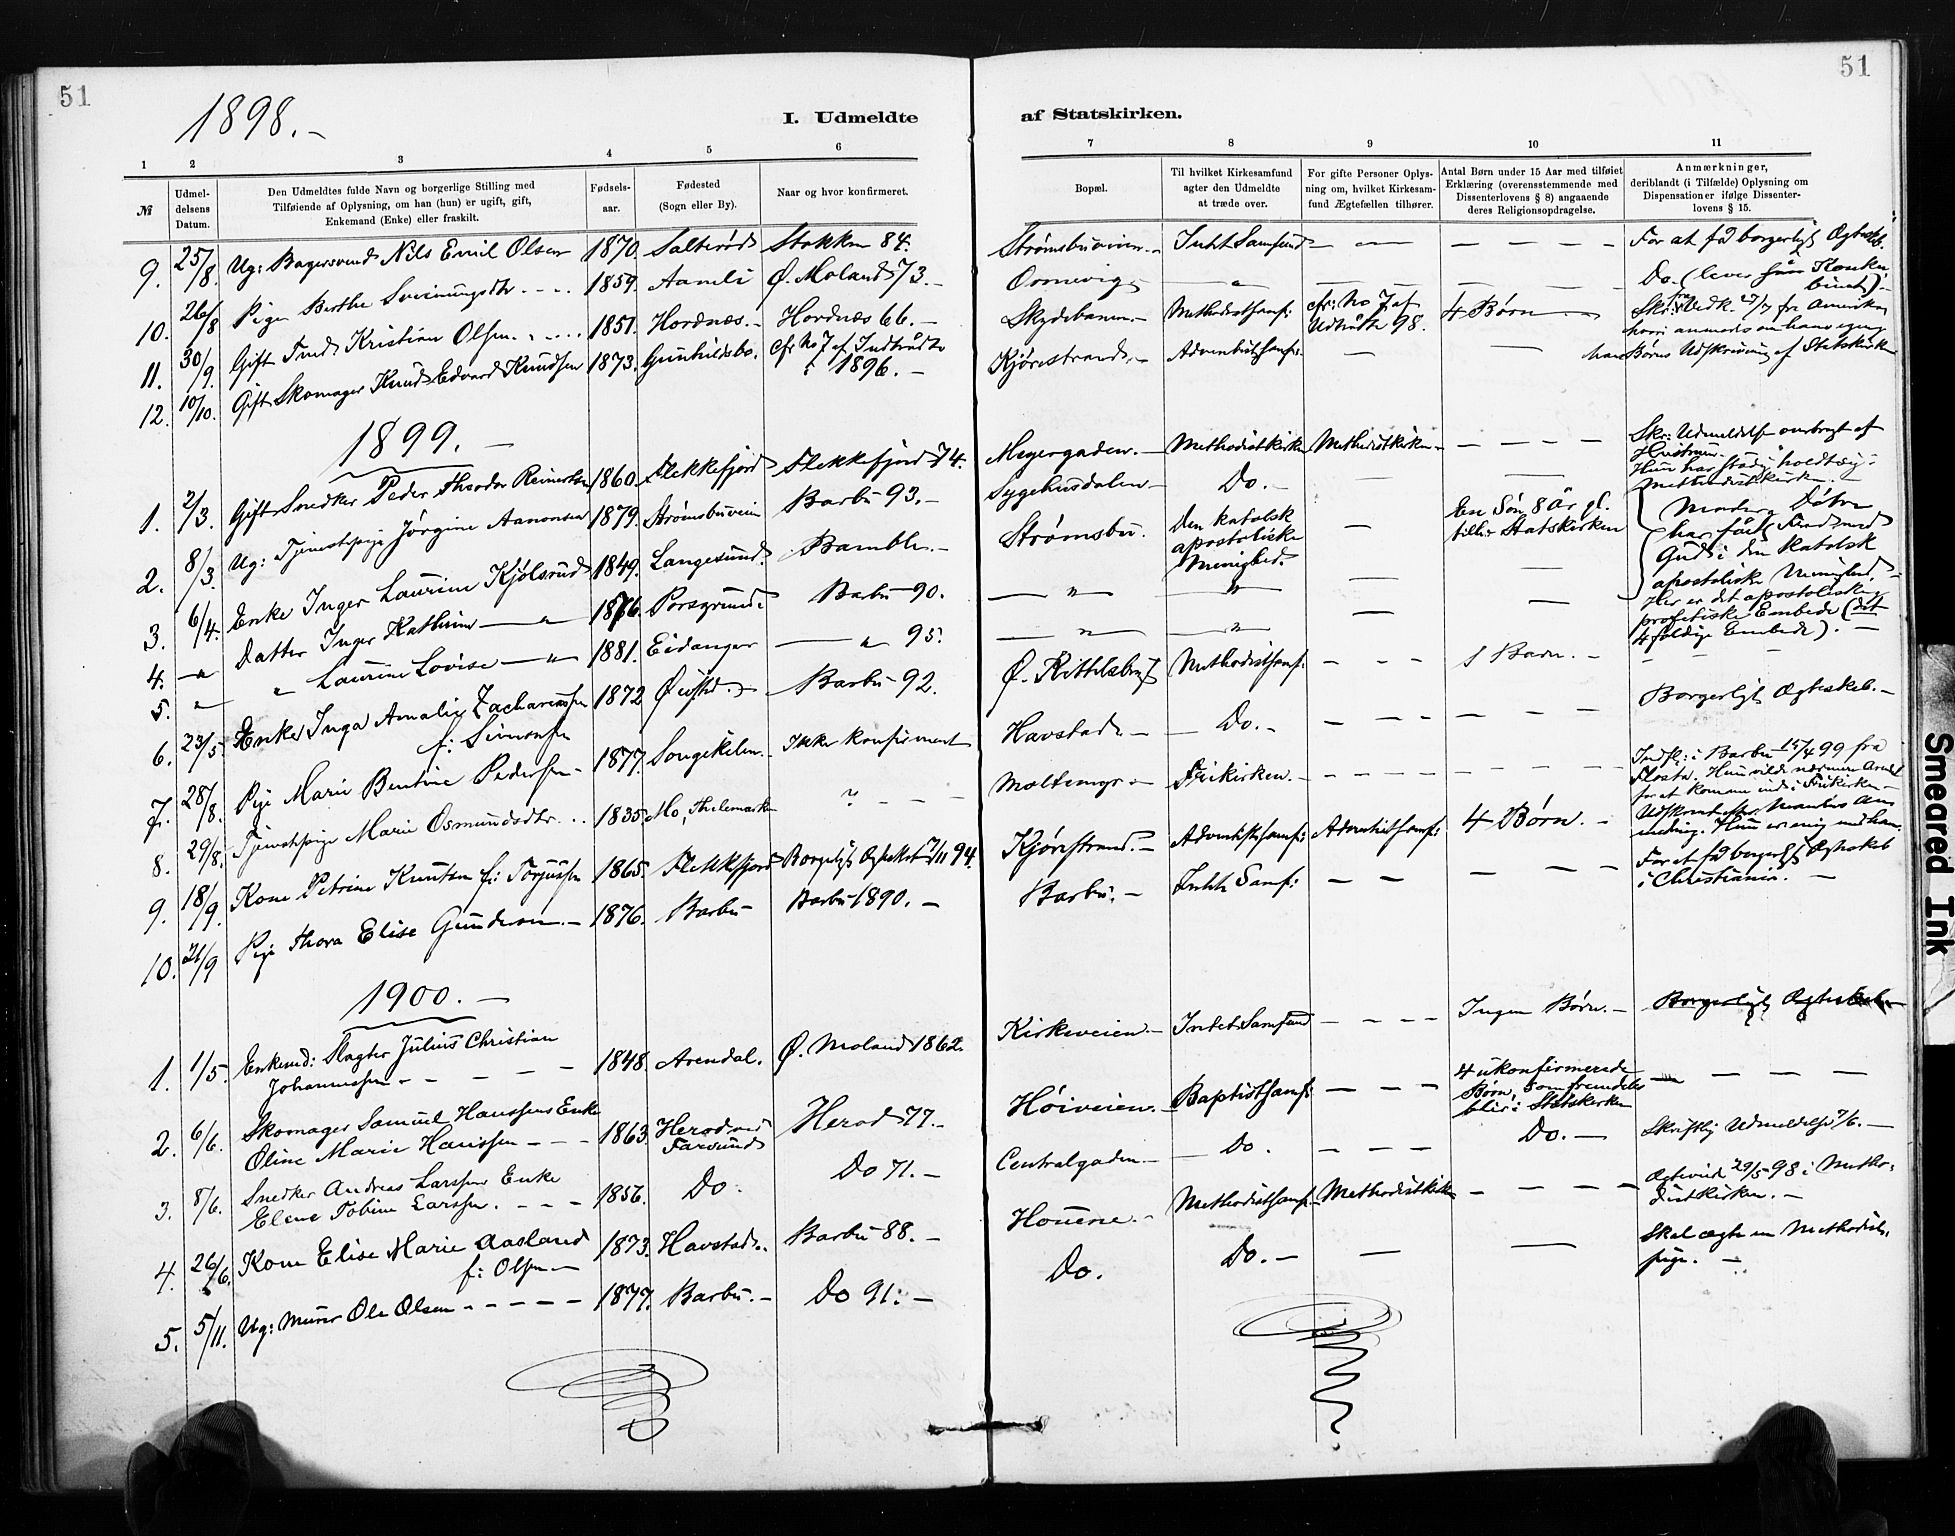 51
51
1898.-
I. Udmeldte
af Statskirken.
1 2 3 4 5 6
7 8 9 10 11
№
Udmeldelsens Datum.
Den Udmeldtes fulde Navn og borgerlige Stilling med
Tilføiende af Oplysning, om han (hun) er ugift, gift,
Enkemand (Enke) eller fraskilt.
Fødselsaar.
Fødested
(Sogn eller By).
Naar og hvor konfirmeret.
Bopæl.
Til hvilket Kirkesamfund
agter den Udmeldte
at træde over.
For gifte Personer Oplysning om, hvilket Kirkesamfund Ægtefællen tilhører.
Antal Børn under 15 Aar med tilføiet
Erklæring (overensstemmende med
Dissenterlovens § 8) angaaende
deres Religionsopdragelse.
Anmærkninger,
deriblandt (i Tilfælde) Oplysning om
Dispensationer ifølge Dissenterlovens § 15.
9. 25/8. Ug: Bagersvend Nils Emil Olsen 1870. Salterød Stokken 84. Strømsbuveien.- Intet Samfund - — - — — — — For at få borgerligt Ægteskb.
10. 26/8 Pige Berthe Sveinungsdtr. - - . 1859. Aamli Ø. Moland 73.- Do. (lever
11. 30/9. Gift Kristian Olsen. - .... 1851. Hordnæs.- Hordnæs 66.- Skydebanen.- Methodistsamf: cfr: No 7 af
Udtrådte 98. 4 Børn — fra Amerika
12. 10/10. Gift Skomager Knud Edvard Knudsen 1873. Gunhildsbo. cfr No 7 af Indtrådte
i 1896.- Kjørrestrand.- Adventistsamf: — — Børns Udskrivning af Statskirken
1899.-
1. 2/3. Gift Snedker Peder Theodor Reinertsen 1860. Flekkefjord Flekkefjord 74. Meyergaden.- Methodistkirken Methodistkirken.- - — — — Skr: Udmeldelse ombragt af
Hustruen.-
2. 8/3. Ug: Tjenestepige Jørgine Aanonsen 1879. Strømsbuveien Barbu 93.- Sygehusdalen - Do.- — — Hun har stadig holdt sig
Methodistkirken.-
3. 6/4. Enke Inger Laurine Kjølsrud 1849. Langesund. Bamble.- Strømsbu. Den katolsk
apostoliske
Menighed. — En Søn 8 År gl.
tilh: Statskirken Moder, Døtre
har fått Fred med
Gud i den katolsk
apostoliske Menighed,
4. —"— Datter Inger Kathrine —"— 1876. Porsgrund. Barbu 90. —"— —"— — — Her er det apostoliske,
profetiske Embede (det
4 foldige Embede).-
5. " " Laurine Lovise —"— 1881. Eidanger —"— 95. —"— —"— — —
6. 23/5. Enke Inga Amalie Zachariassen
f: Simonsen 1872 Øiestad.- Barbu 92. Ø. Kittelsbugt Methodistsamf: - - - 1 Barn.- - - -
7. 28/8. Pige Marie Bentine Pedersen - 1877. Songekilen.- Ikke konfirmert Havstad - — Do.- - - - - - - Borgerligt Ægteskab.-
8. 29/8. Tjenestepige Marie Osmundsdtr. .. 1835. Mo, Thelemarken ? - - - Moltemyr - Frikirken.- - - - - - - - - Indfl: i Barbu 15/4 99 fra
Flosta. Hun vilde nærmere Arendal
for at komme ind i Frikirken
9. 18/9. Kone Petrine Knutsen f: Torjussen 1865. Flekkefjord Borgerligt Ægteskab 7/11 94. Kjørrestrand.- Adventistsamf: Adventistsamf: 4 Børn.- Hun er enig med ham.
10. 21/9 Pige Thora Elise Gundersen.- 1876. Barbu Barbu 1890.- Barbu.- Intet Samf: - - - - - For at få borgerligt Ægteskab
i Christiania.-
1900.-
1. 1/5. Enkemd: Slagter Julius Christian
Johannessen - - - - - 1848. Arendal. Ø. Moland 1862. Kirkeveien.- Intet Samfund - - - - Ingen Børn.- Borgerligt Ægteskab
2. 6/6. Skomager Samuel Hanssens Enke
Oline Marie Hanssen - - - 1863. Herod ved
Farsund Herod 77.- Høiveien.- Baptistsamf: - - - - 4 ukonfirmerede
Børn, som fremdeles
blir i Statskirken — — — —
3. 8/6. Snedker Andreas Larssens Enke
Elene Tobine Larssen. - - - 1856. Do. Do 71.- Centralgaden.- — Do. Do.- Skriftlig Udmeldelse 7/6.-
4. 26/6. Kone Elise Marie Aasland
f: Olsen - 1873. Havstad.. Barbu 88.- Houene.- Methodistsamf.- Methodistkirken - - - - Ægteviet 29/5 98 i Methodistkirken.-
5. 5/11. Ug: Murer Ole Olsen - - - - - 1877. Barbu.- Do 91.- Do. Do.- — — Skal ægte en Methodistpige.-
Smeared Ink